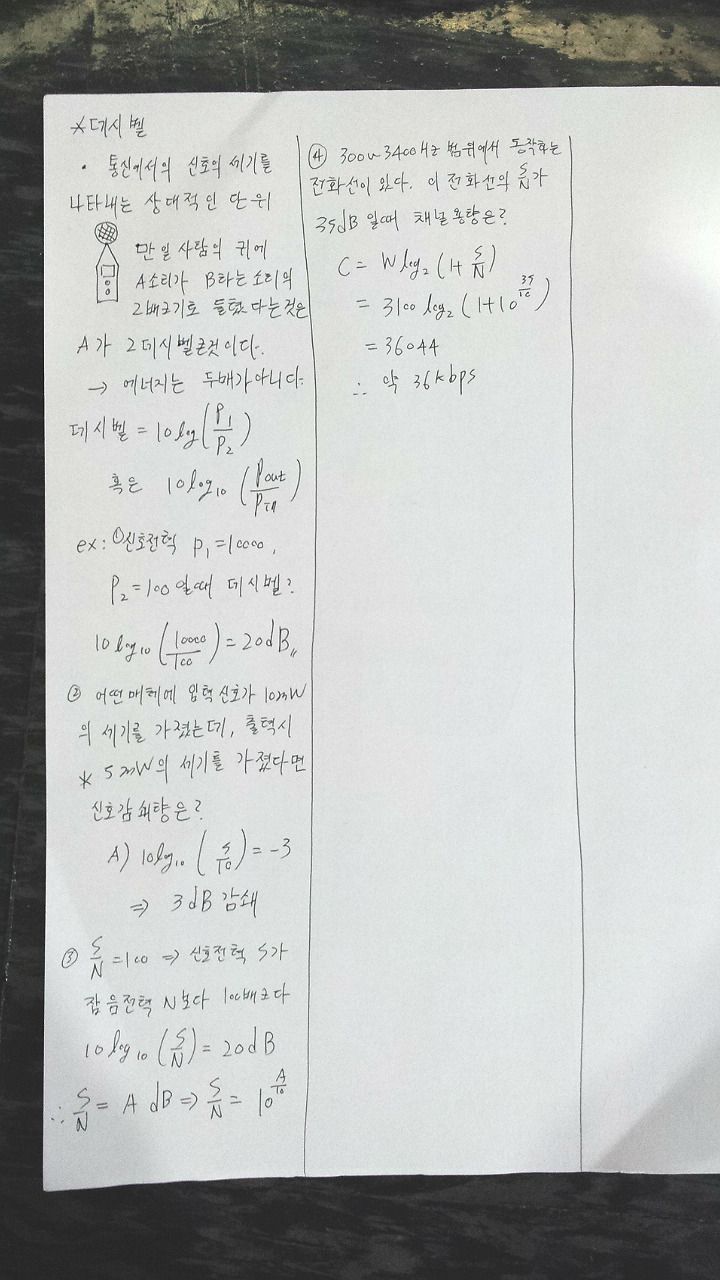 * 데시벨
· 통신에서의 신호의 세기를
나타내는 상대적인 단위
만일 사람의 귀에
A소리가 B라는 소리의
2배크기로 들렸다는것은
A가 2데시벨큰것이다.
→ 에너지는 두배가아니다.
데시벨 = 10log(P1/P2)
혹은 10log10 (Pout/Pin)
ex: ①신호전력 P1=10000,
P2=100 일때 데시벨?
10log10 (10000/100) = 20dB〃
② 어떤매체에 입력신호가 10mW
의 세기를 가졌는데, 출력시
* 5mW의 세기를 가졌다면
신호감쇄량은?
A) 10log10 (5/10) = -3
⇒ 3dB 감쇄
③ S/N = 100 ⇒ 신호전력 S가
잡음전력 N보다 100배크다
10log10 (S/N) = 20dB
∴ S/N = A dB ⇒ S/N = 10^(A/10)
④ 300~3400Hz 범위에서 동작하는
전화선이 있다. 이 전화선의 S/N가
35dB 일때 채널용량은?
C = Wlog2 (1+S/N)
= 3100 log2 (1+10^(35/10))
= 36044
∴ 약 36kbps